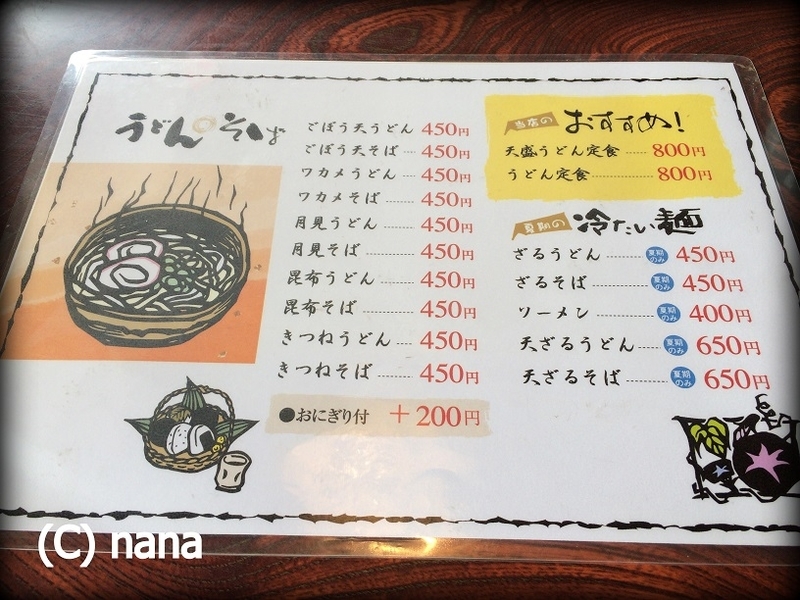 うどんそば
ごぼう天うどん 450円
ごぼう天そば 450円
ワカメうどん 450円
ワカメそば 450円
月見うどん 450円
月見そば 450円
昆布うどん 450円
昆布そば 450円
きつねうどん 450円
きつねそば 450円
●おにぎり付 +200円
当店の おすすめ!
天盛うどん定食 800円
うどん定食 800円
夏期の 冷たい麺
ざるうどん 夏期のみ 450円
ざるそば 夏期のみ 450円
ソーメン 夏期のみ 400円
天ざるうどん 夏期のみ 650円
天ざるそば 夏期のみ 650円
(C) nana